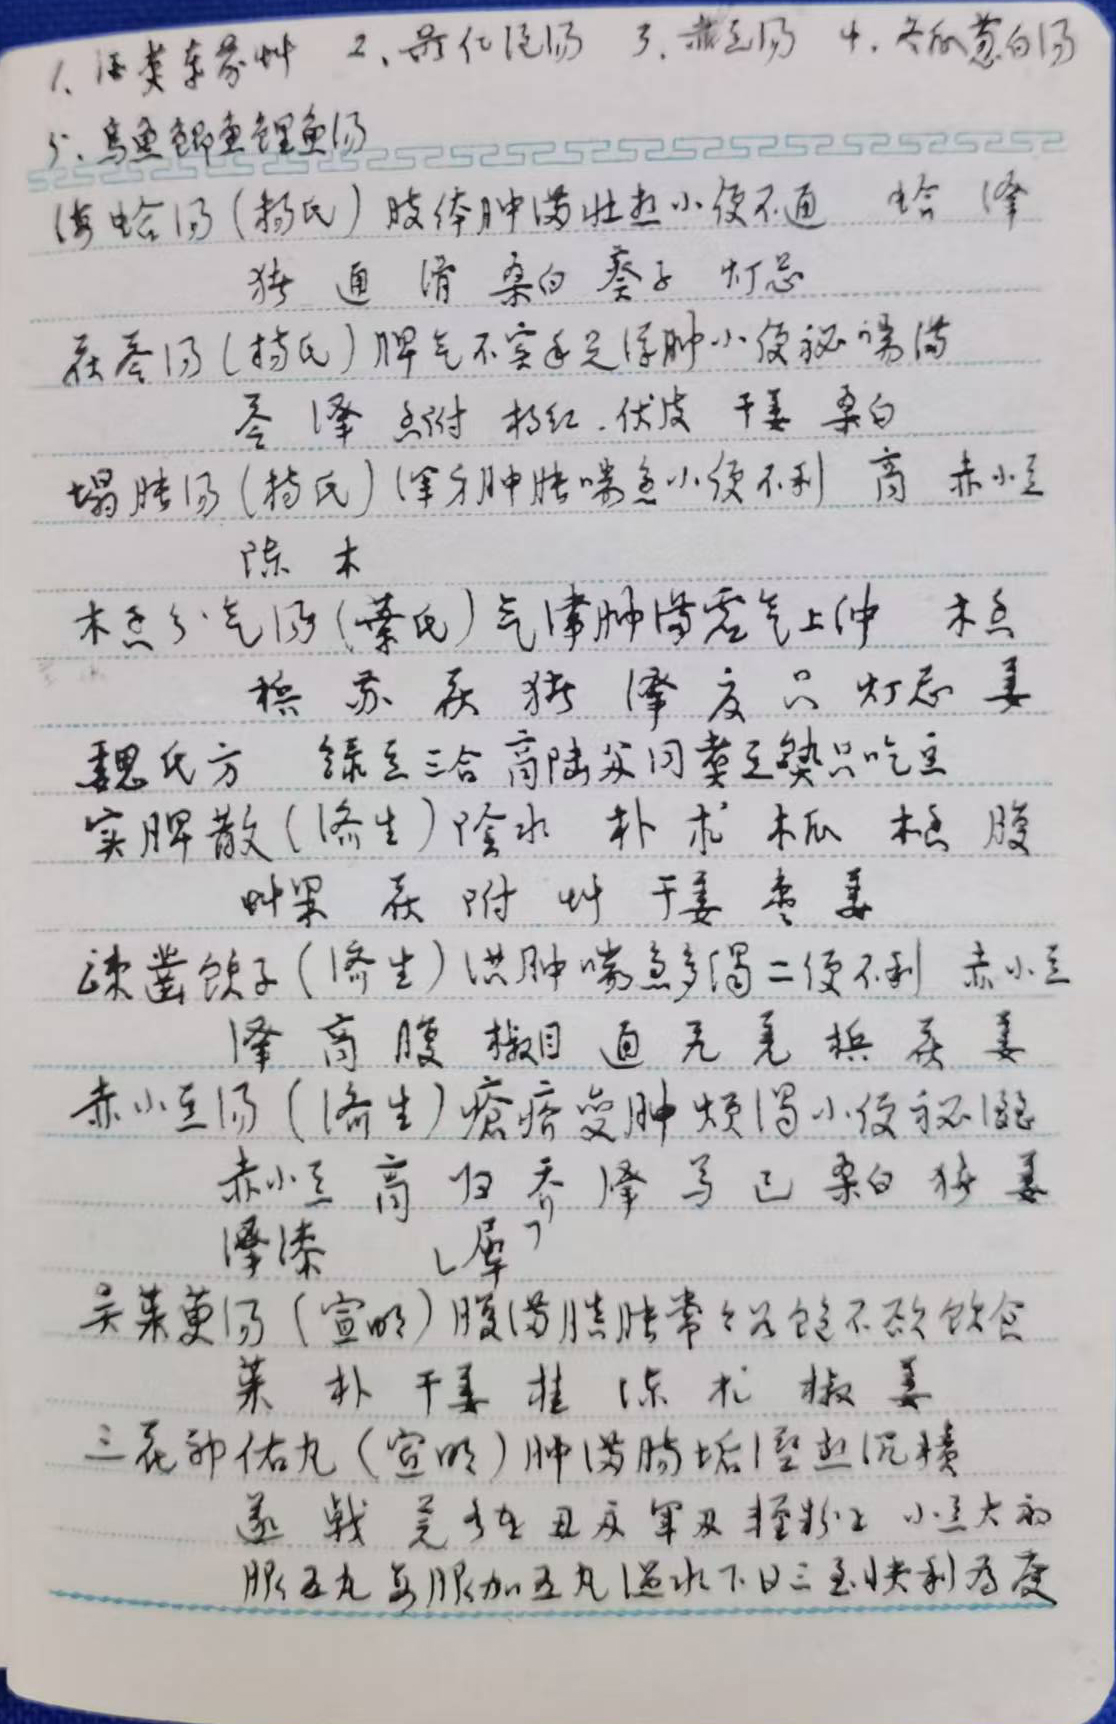 2、 3、赤豆汤 4、冬瓜葱白汤
5、乌鱼鲫鱼鲤鱼汤
海蛤汤(杨氏)肢体肿满壮热小便不通 蛤 泽
猪 通 滑 桑白 葵子 灯芯
茯苓汤(杨氏)脾气不实手足浮肿小便秘 满
苓 泽 香附 橘红 伏皮 干姜 桑白
塌胀汤(杨氏)浑身肿胀喘急小便不利 商 赤小豆
陈 木
木香分气汤(叶氏)气滞肿满虚气上冲 木香
槟 苏 茯 猪 泽 夏 只 灯芯 姜
魏氏方 绿豆三合 商陆 同煮豆 只吃豆
实脾散(济生)阴水 朴 术 木瓜 木香 腹
艸果 茯 附 艸 干姜 枣 姜
疏凿饮子(济生)洪肿喘急多渴二便不利 赤小豆
泽 商 腹 椒目 通 艽 羌 槟 茯 姜
赤小豆汤(济生)疮疥变肿烦渴小便秘涩
赤小豆 商 归 乔 泽 芍 己 桑白 猪 姜
泽漆 犀
吴茱萸汤(宣明)腹满䐜胀常常如饱不欲饮食
茱 朴 干姜 桂 陈 术 椒 姜
三花神佑丸(宣明)肿满肠垢湿热沉积
遂 戟 芫 各 丑 军 轻粉 小豆大 初
服五丸每服加五丸温水下日三至快利为度